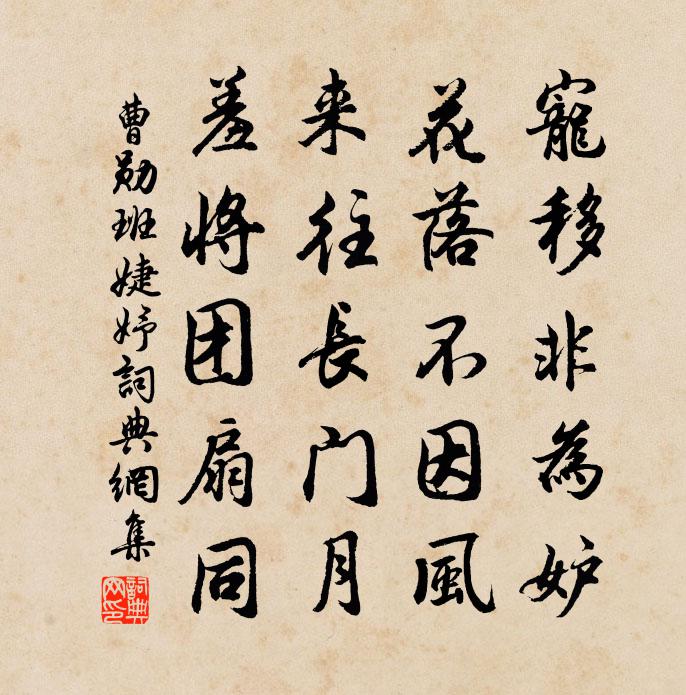 寵移非為妒
花落不因風
来往長门月
羞將团扇同
曹勛班婕妤詞典網集
詞典网印